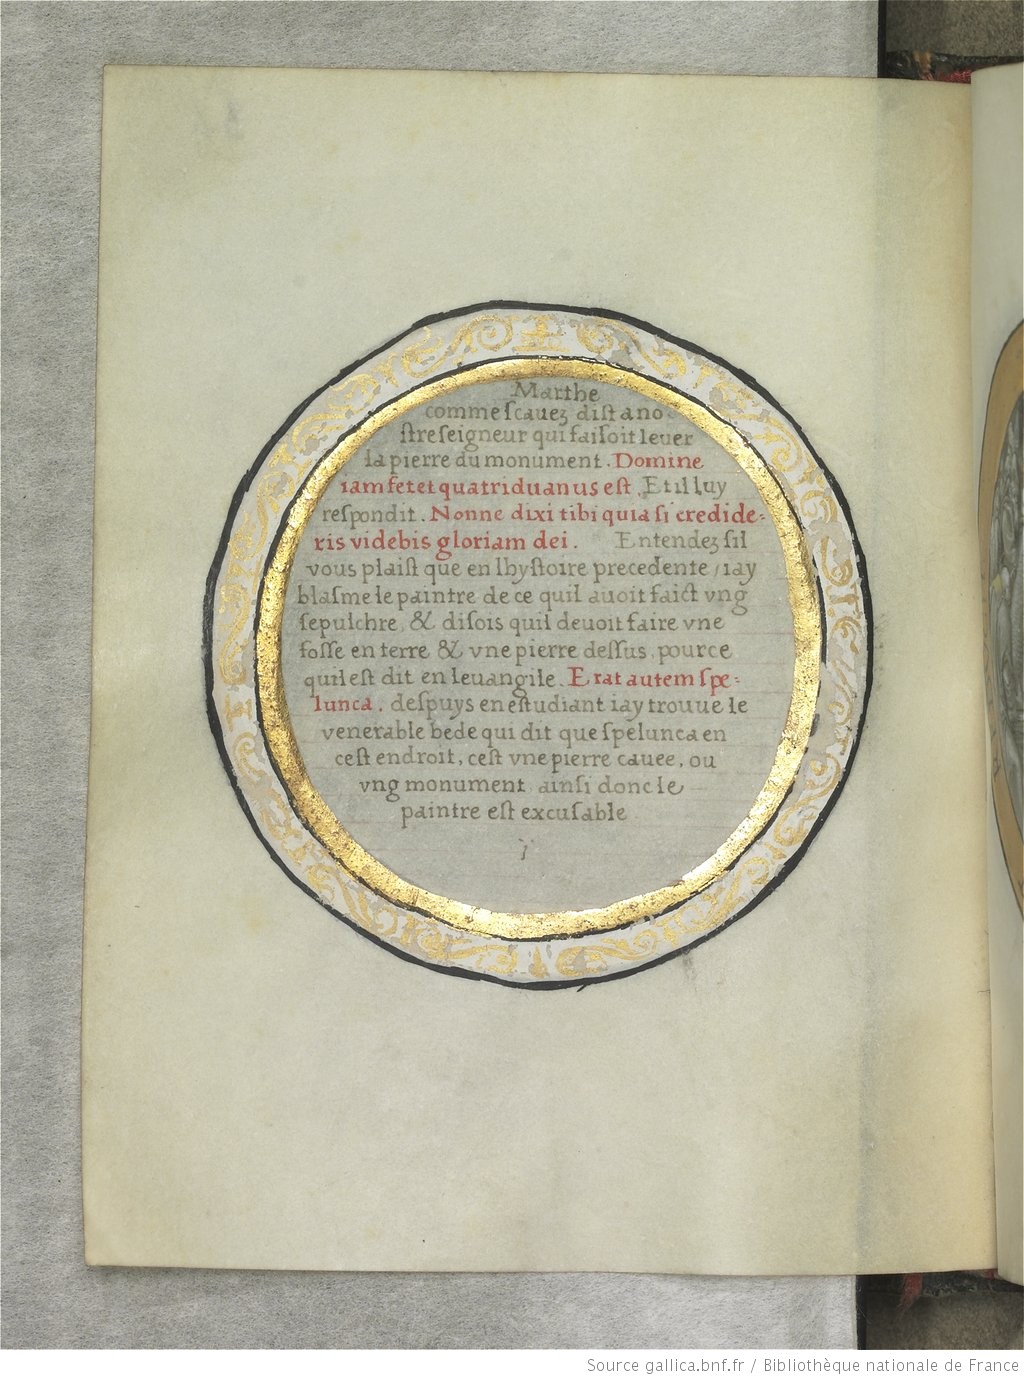 Marthe
comme scauez dist a no
stre seigneur qui faisoit leuer
la pierre du monument. Domine
iam fetet quatriduanus est. Et il luy
respondit. Nonne dixi tibi quia si credide-
ris videbis gloriam dei. Entendez sil
vous plaist que en lhystoire precedente / iay
blasme le paintre de ce quil auoit faict vng
sepulchre & disois quil deuoit faire vne
fosse en terre & vne pierre dessus pource
quil est dit en leuangile. Erat autem spe-
lunca. despuys en estudiant iay trouue le
venerable bede qui dit que spelunca en
cest endroit, cest vne pierre cauee, ou
vng monument ainsi donc le
paintre est excusable
Source gallica.bnf.fr / Bibliothèque nationale de France